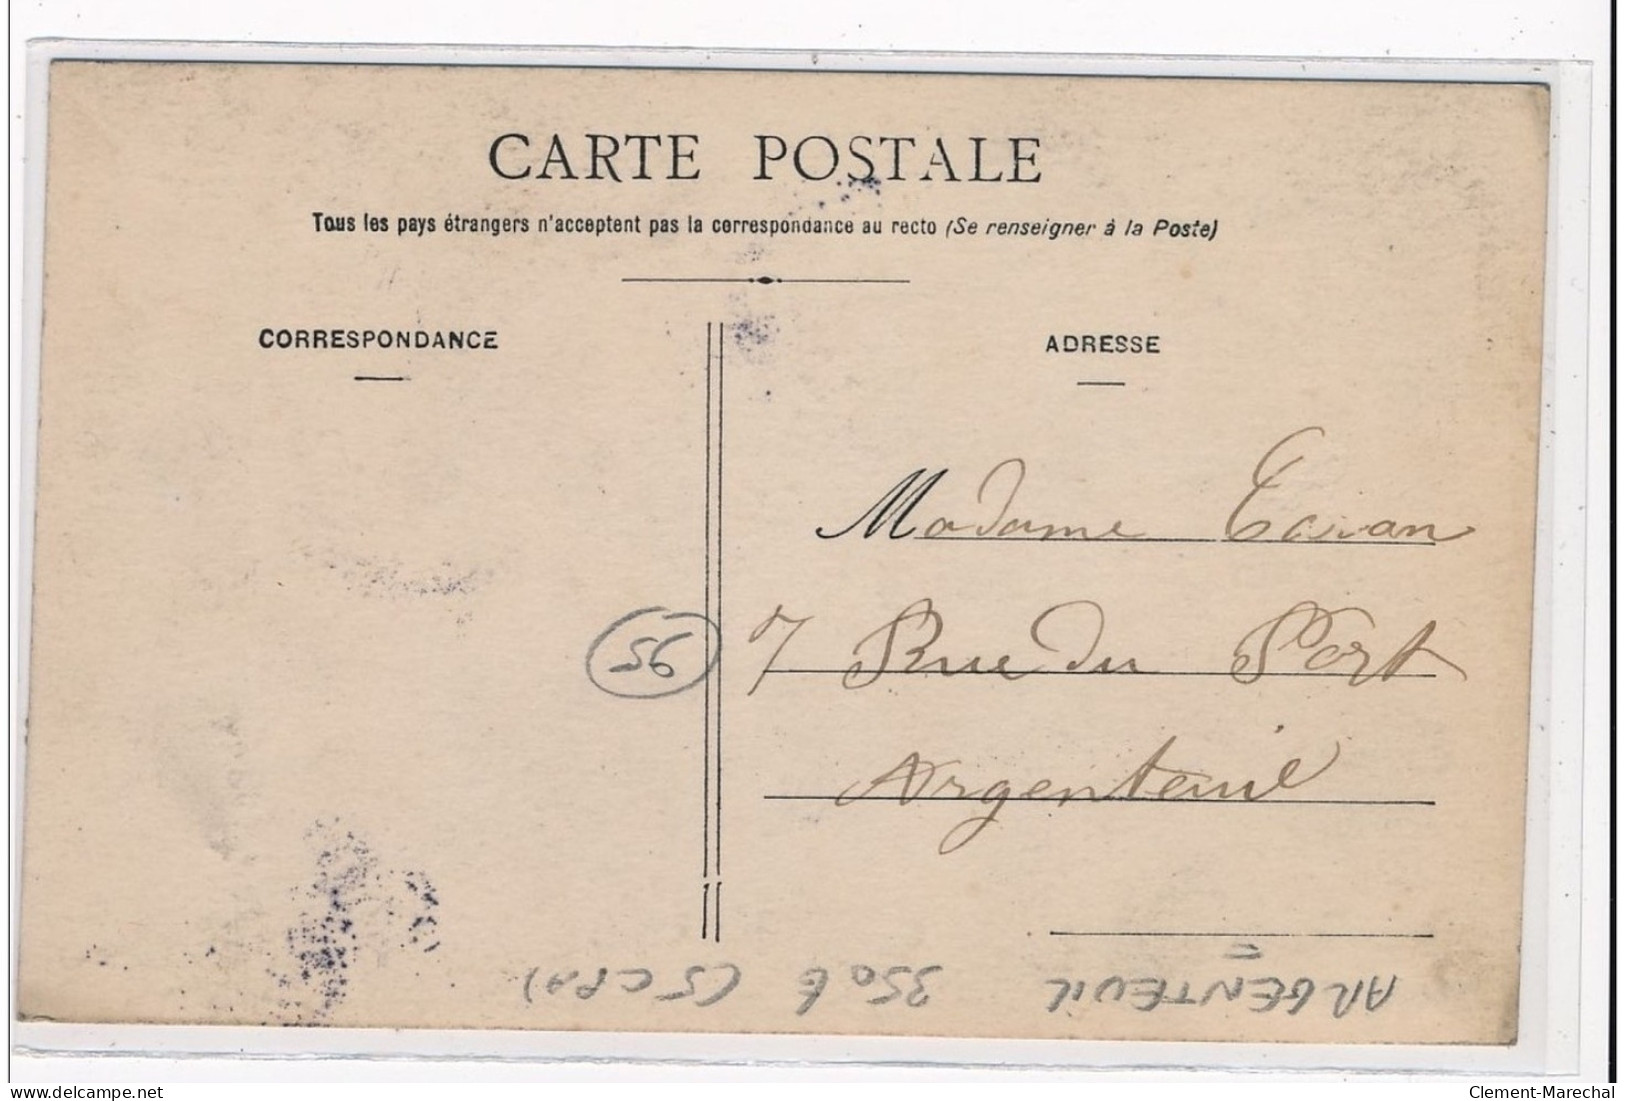 CARTE POSTALE
Tous les pays étrangers n'acceptent pas la correspondance au recto (Se renseigner à la Poste)
CORRESPONDANCE
ADRESSE
Madame Tavan
56
7 Rue du Port
Argenteuil
ARGENTEUIL 350 F (5 CPA)
delcampe.net
Clement-Marechal